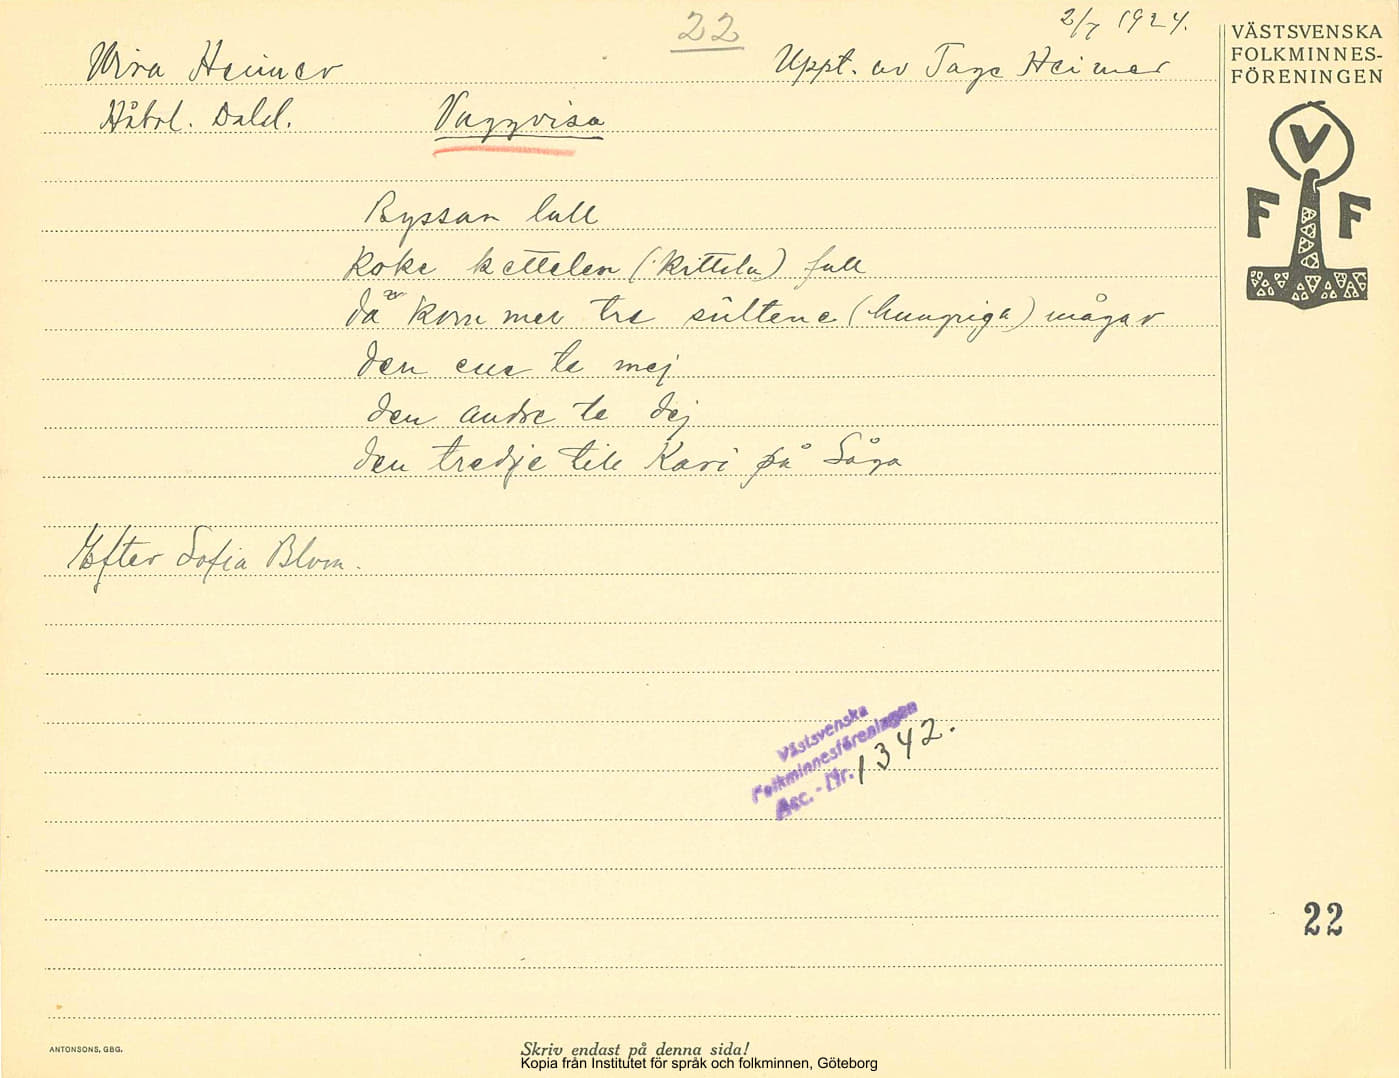 22
2/7 1924.
Wira Heimer
Uppt. av Tage Heimer
Håbol. Dalsl.
Vaggvisa
Byssan lull
koke kettelen (kitteln) full
då kommer tre sültene (hungriga) mågar
den ene te mej
den andre te dej
den tredje till Kari på Såga
Efter Sofia Blom.
VÄSTSVENSKA
FOLKMINNES-
FÖRENINGEN
V
F F
Västsvenska
Folkminnesföreningen
Acc.-Nr. 1342.
22
ANTONSONS, GBG.
Skriv endast på denna sida!
Kopia från Institutet för språk och folkminnen, Göteborg